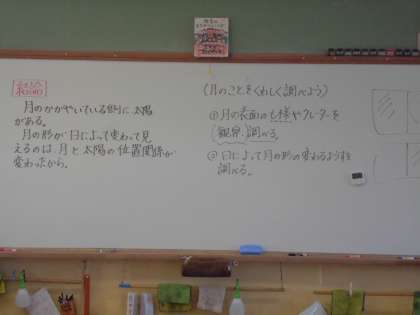 結論
月のかがやいている側に太陽
がある。
月の形が日によって変わって見
えるのは、月と太陽の位置関係が
変わったから。
(月のことをくわしく調べよう)
①月の表面のも様やクレーターを
観察、調べる。
②日によって月の形の変わるようすを
調べる。